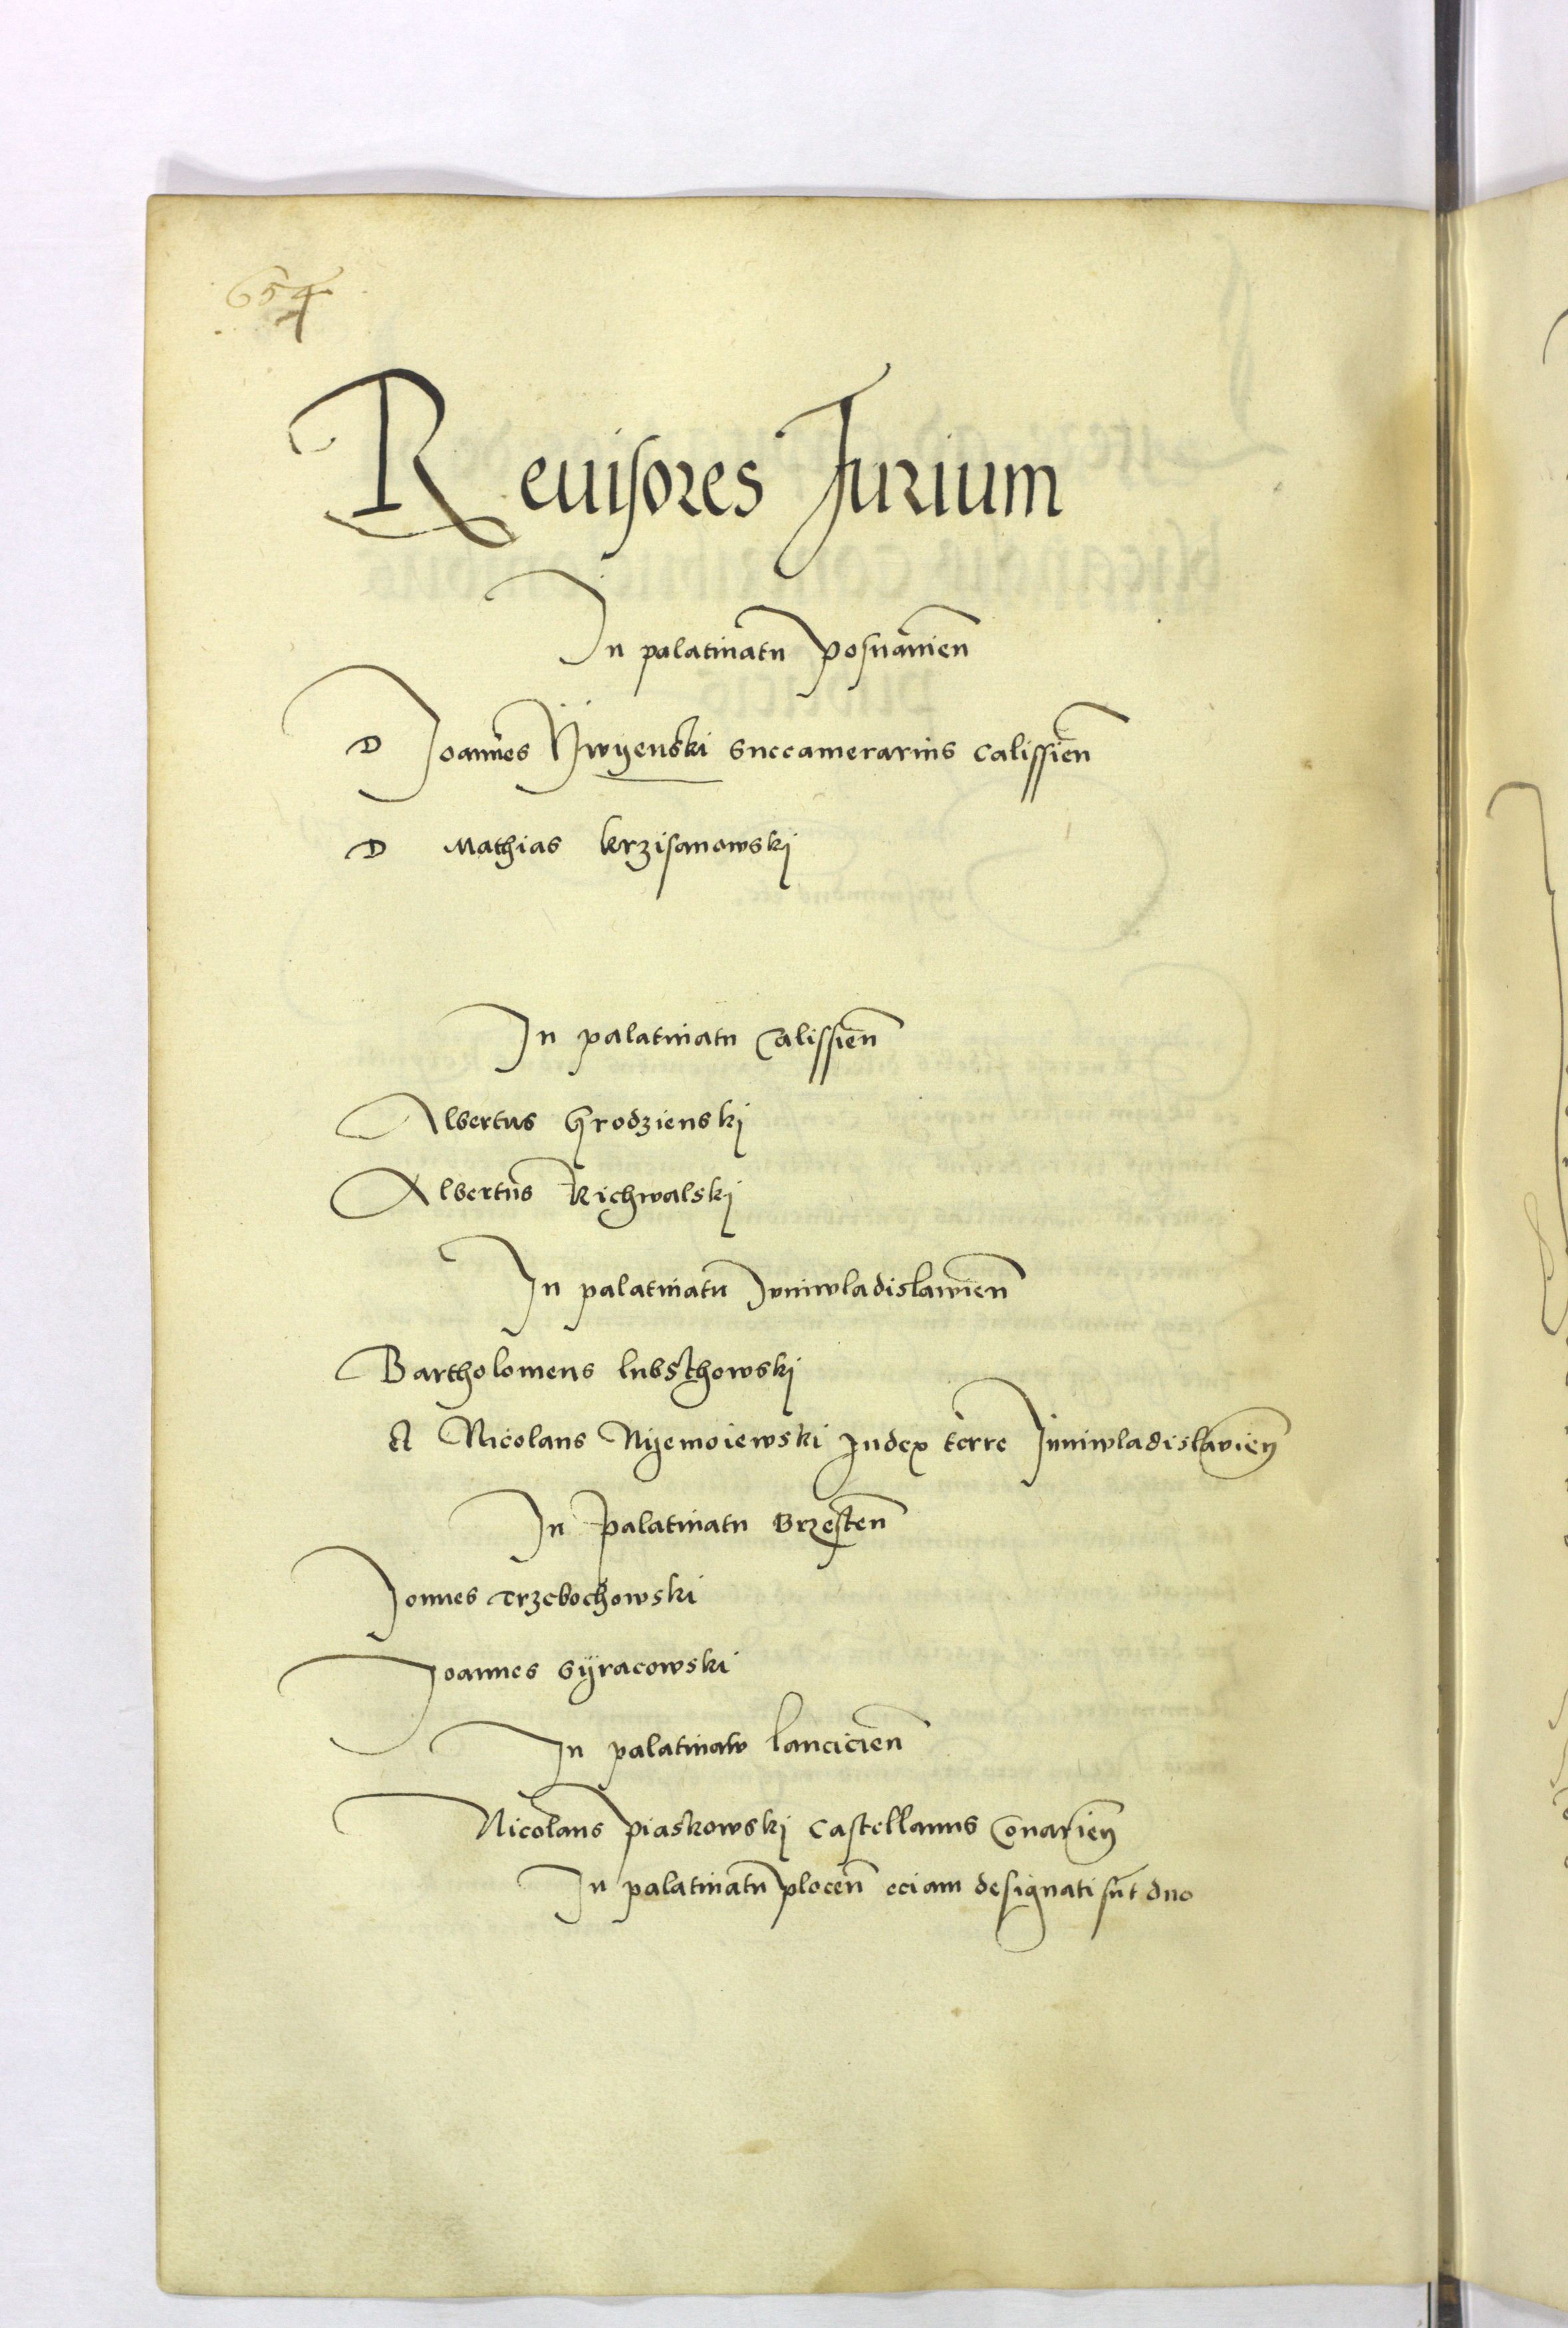 654
Reuisores Jurium
In palatinatu posnanien
D Joannes Jwyenski succamerarius calissien
D Mathias krzisanowskj
In palatinatu calissien
Albertus Grodzienskj
Albertus Richwalskj
In palatinatu Juniwladislauien
Bartholomeus lubsthowskj
Nicolaus Nyemoiewski Judex terre Juniwladislauien
In palatinatu Brzesten
Jonnes Trzebochowski
Joannes Syracowski
In palatinatu lancicien
Nicolaus piaskowskj castellanus Conarien
In palatinatu plocen eciam designati sunt duo